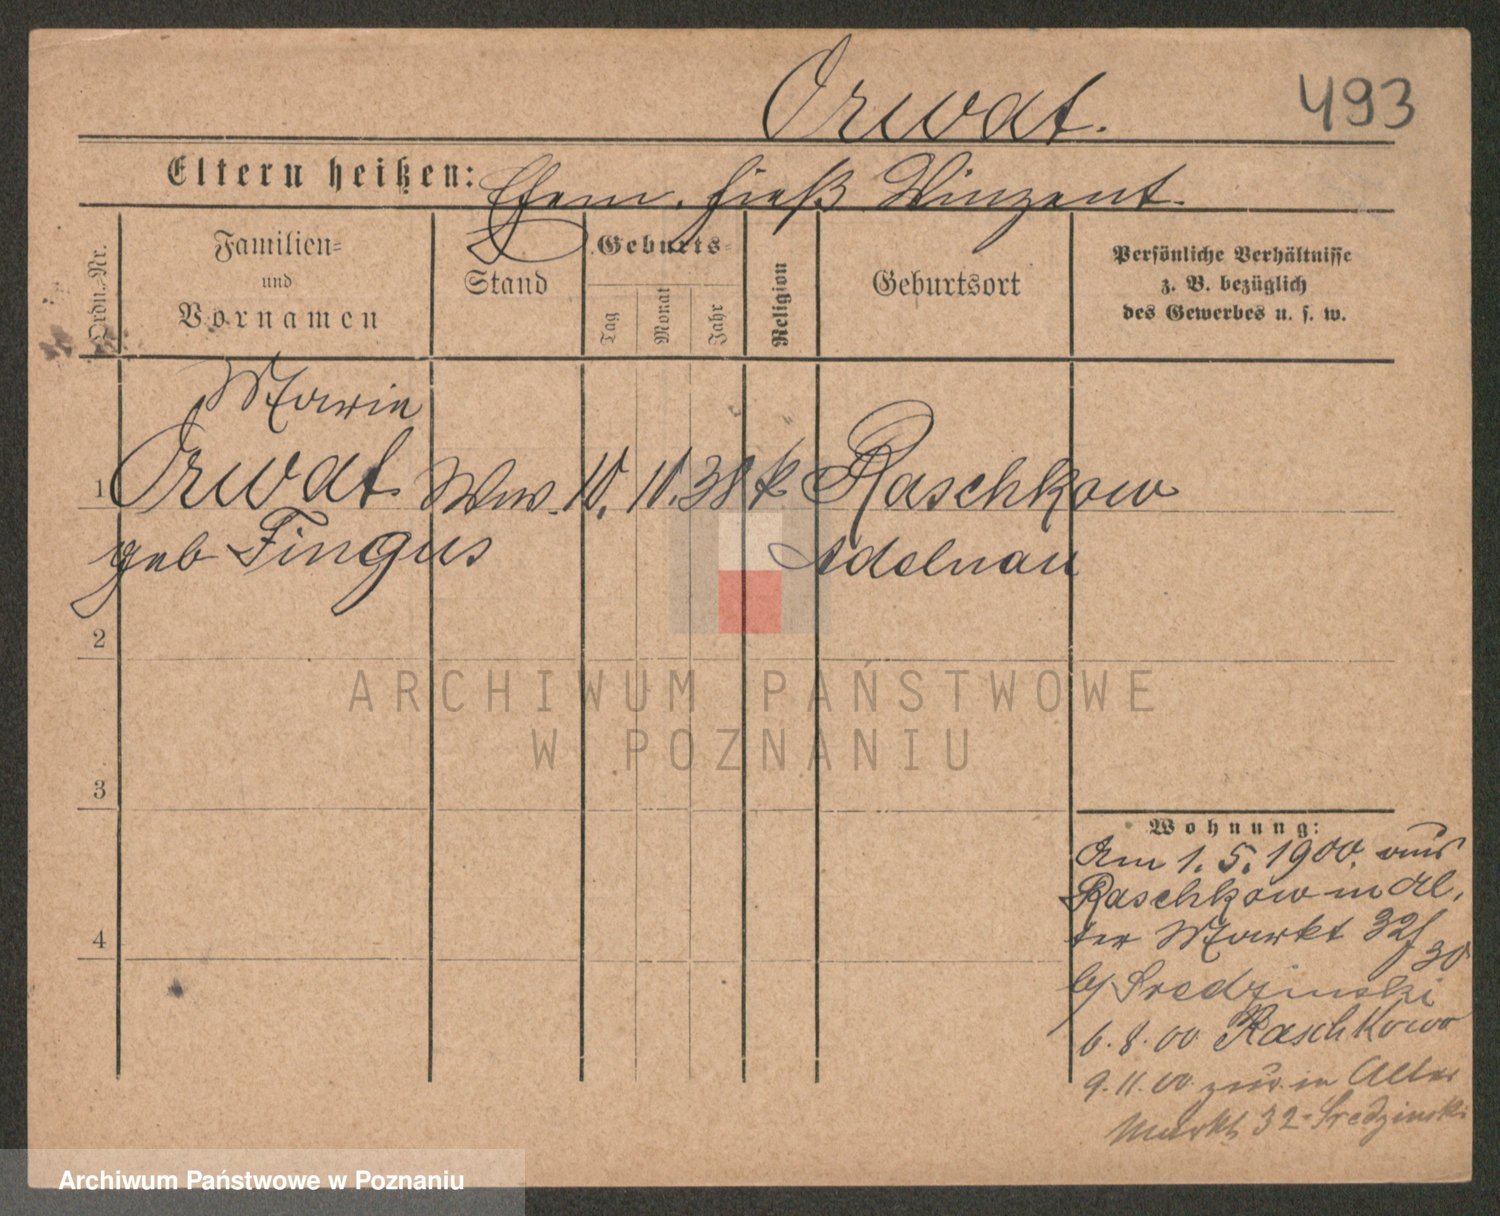 Orwat.
493
Eltern heißen: Ehem. hieß Winzent.
Ordn.-Nr.
Familien-
und
Vornamen
Stand
Geburts-
Tag
Monat
Jahr
Religion
Geburtsort
Persönliche Verhältnisse
z. B. bezüglich
des Gewerbes u. s. w.
Marie
1 Orwat Ww. 10. 10. 38 k Raschkow
geb Fingus Adelnau
2
3
4
Wohnung:
Am 1. 5. 1900. aus
Raschkow in Al-
ter Markt 32/30
b/ Sredzinski
6. 8. 00 Raschkow
9. 11. 00 zur. in Alter
Markt 32 - Sredzinski
ARCHIWUM PAŃSTWOWE
W POZNANIU
Archiwum Państwowe w Poznaniu